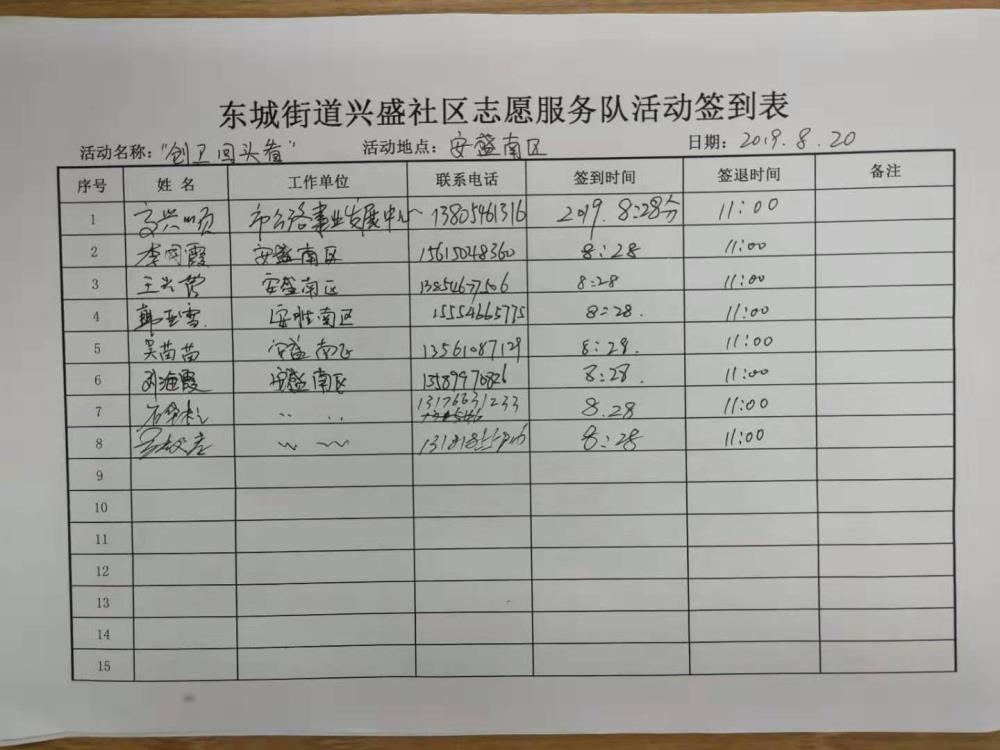 东城街道兴盛社区志愿服务队活动签到表
活动名称：“创卫回头看” 活动地点：安盛南区 日期：2019.8.20
序号 姓名 工作单位 联系电话 签到时间 签退时间 备注
1 市公路事业发展中心 13805461316 2019. 8:28分 11:00
2 李同霞 安盛南区 15615048360 8:28 11:00
3 安盛南区 13854677506 8:28 11:00
4 韩亚雪 南区 15554665775 8:28. 11:00
5 吴苗苗 安盛南区 13561087129 8:28. 11:00
6 刘海霞 安盛南区 13589970826 8:28. 11:00
7 13176631233 8.28 11:00
8 8:28 11:00
9
10
11
12
13
14
15